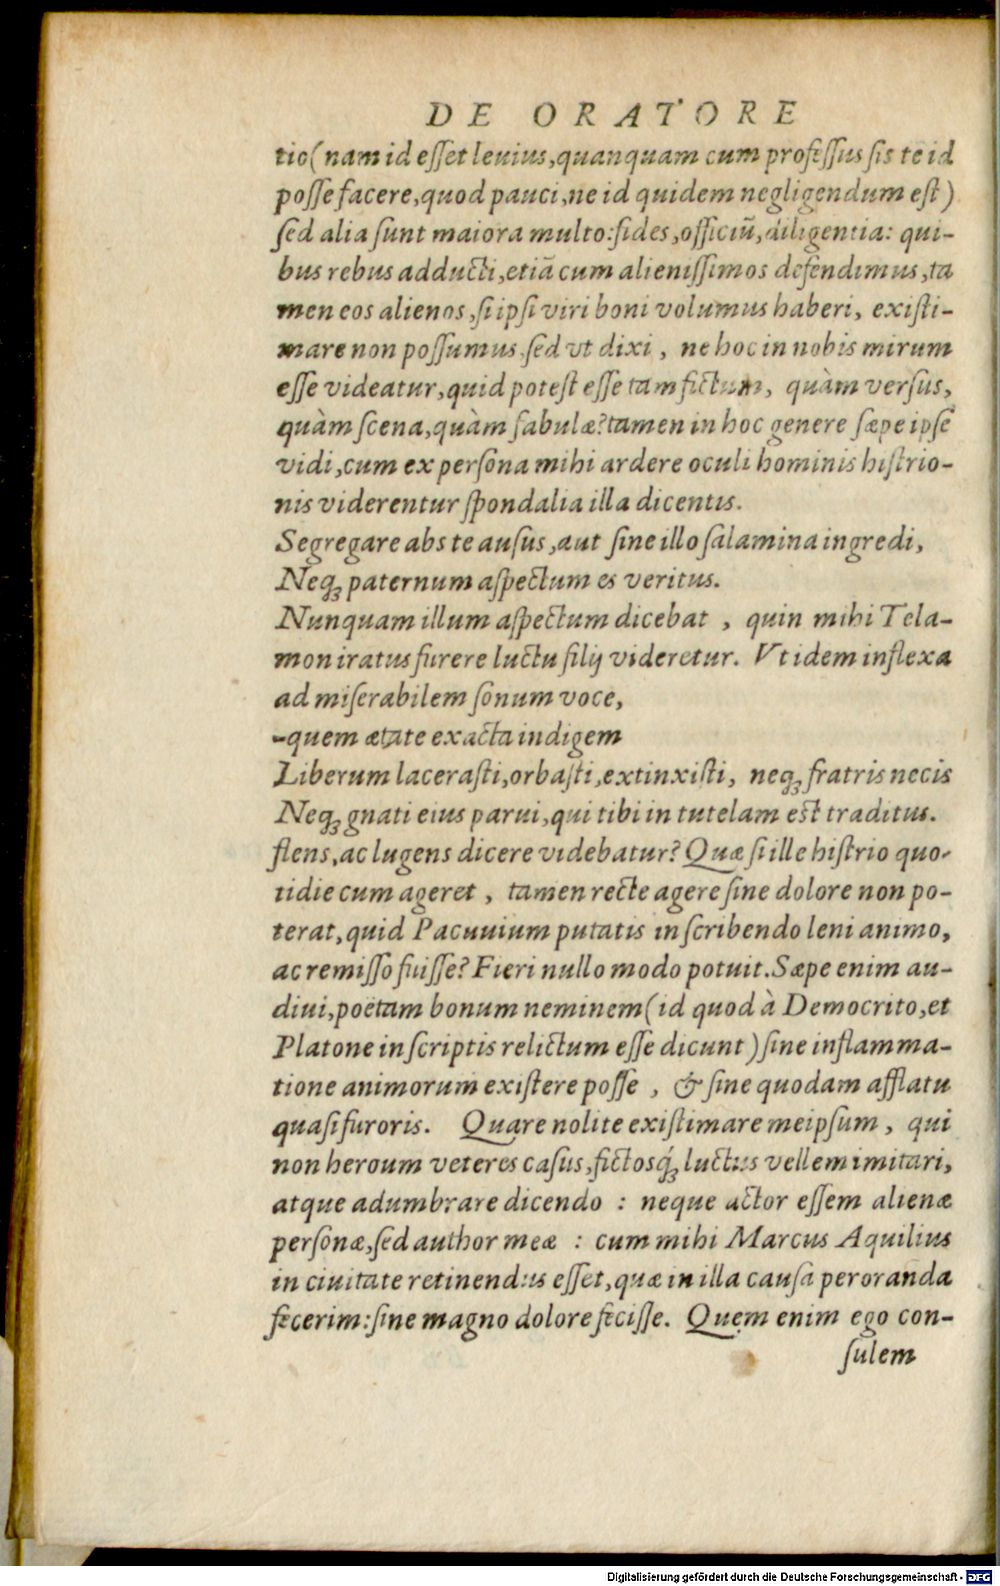 DE ORATORE
tio(nam id eſſet leuius,quanquam cum profeſſus ſis te id
poſſe facere,quod pauci,ne id quidem negligendum eſt)
ſed alia ſunt maiora multo:fides,officiũ,diligentia: qui-
bus rebus adducti,etiã cum alieniſſimos defendimus,ta
men eos alienos,ſi ipſi viri boni volumus haberi, exiſti-
mare non poſſumus,ſed vt dixi, ne hoc in nobis mirum
eſſe videatur,quid poteſt eſſe tam fictum, quàm verſus,
quàm ſcena,quàm fabulæ?tamen in hoc genere ſæpe ipſe
vidi,cum ex perſona mihi ardere oculi hominis hiſtrio-
nis viderentur ſpondalia illa dicentis.
Segregare abs te auſus,aut ſine illo ſalamina ingredi,
Neqꝫ paternum aſpectum es veritus.
Nunquam illum aſpectum dicebat , quin mihi Tela-
mon iratus furere luctu filij videretur. Vt idem inflexa
ad miſerabilem ſonum voce,
-quem ætate exacta indigem
Liberum laceraſti,orbaſti,extinxiſti, neqꝫ fratris necis
Neqꝫ gnati eius parui,qui tibi in tutelam eſt traditus.
flens,ac lugens dicere videbatur? Quæ ſi ille hiſtrio quo-
tidie cum ageret , tamen recte agere ſine dolore non po-
terat,quid Pacuuium putatis in ſcribendo leni animo,
ac remiſſo fuiſſe? Fieri nullo modo potuit.Sæpe enim au-
diui,poëtam bonum neminem(id quod à Democrito,et
Platone in ſcriptis relictum eſſe dicunt)ſine inflamma-
tione animorum exiſtere poſſe , & ſine quodam afflatu
quaſi furoris. Quare nolite exiſtimare meipſum, qui
non heroum veteres caſus,fictosq́ꝫ luctus vellem imitari,
atque adumbrare dicendo : neque actor eſſem alienæ
perſonæ,ſed author meæ : cum mihi Marcus Aquilius
in ciuitate retinendus eſſet,quæ in illa cauſa peroranda
fecerim:ſine magno dolore feciſſe. Quem enim ego con-
ſulem
Digitalisierung gefördert durch die Deutsche Forschungsgemeinschaft - DFG